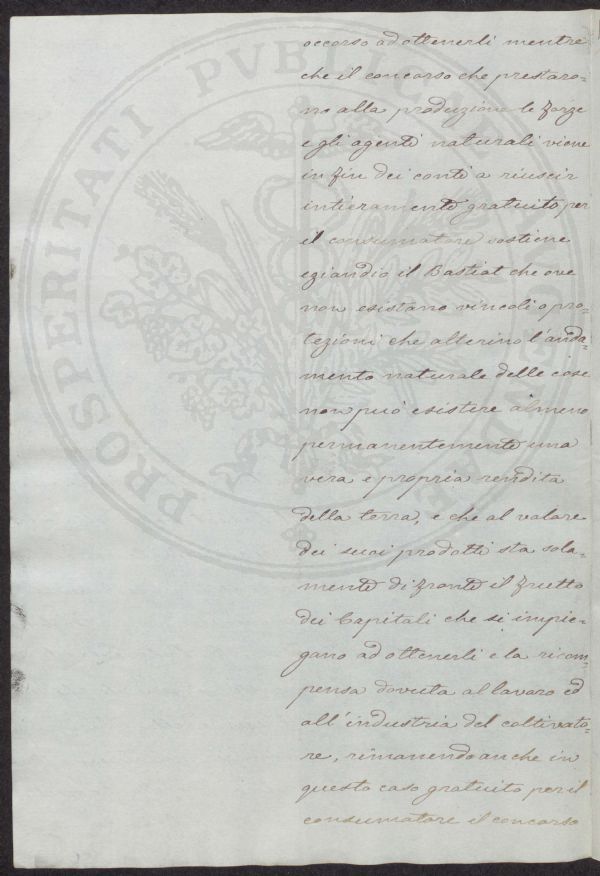 occorso ad ottenerli mentre
che il concorso che prestaro=
no alla produzione le forze
e gli agenti naturali viene
in fin dei conti a riuscir
intieramente gratuito per
il consumatore sostiene
eziandio il Bastiat che ove
non esistano vincoli o pro=
tezioni che alterino l'anda=
mento naturale delle cose
non può esistere almeno
permanentemente una
vera e propria rendita
della terra, e che al valore
dei suoi prodotti sta sola=
mente di fronte il frutto
dei Capitali che si impie=
gano ad ottenerli e la ricom=
pensa dovuta al lavoro ed
all'industria del coltivato=
re, rimanendo anche in
questo caso gratuito per il
consumatore il concorso
PROSPERITATI PUBLICAE